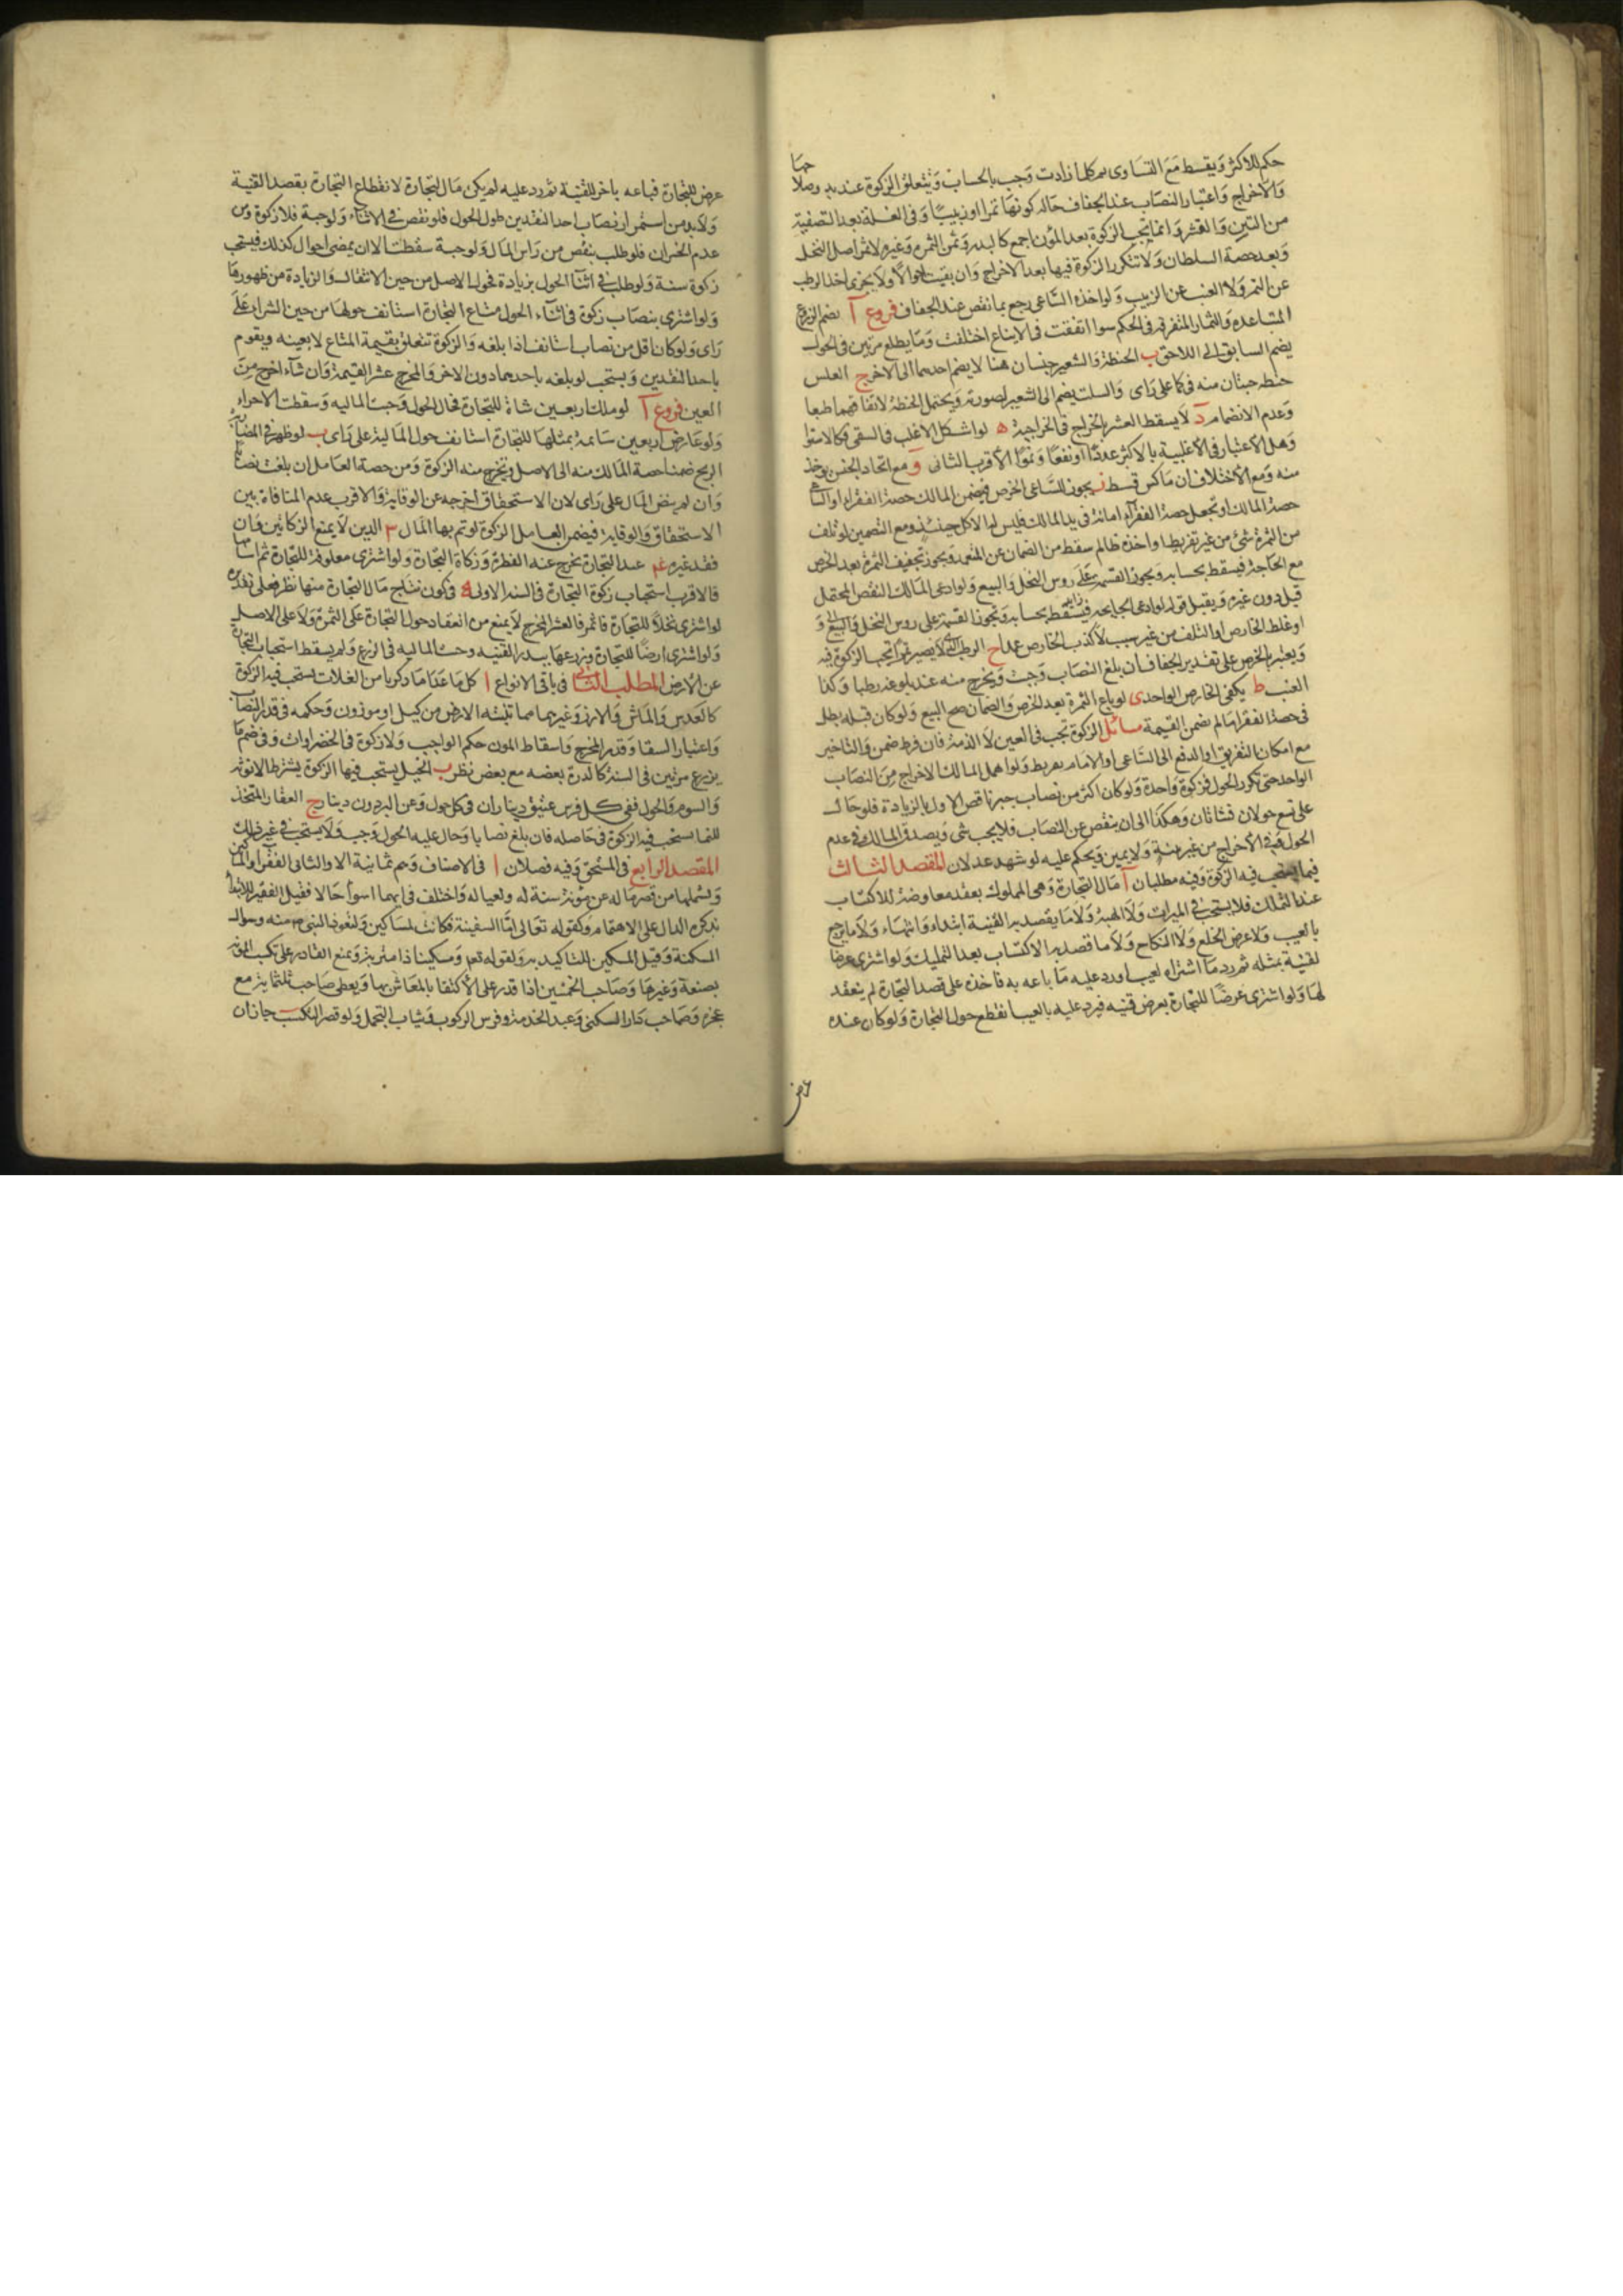 حكم للاكثر ويقسط مع التساوى ثم كلما زادت وجب بالحساب ويتعلق الزكوة عند بدو صلاحها
والاخراج واعتبار النصاب عند الجفاف حاله كونها تمرا او زبيبا وفى الغلة بعد التصفية
من التبن والقشر وانما يجب الزكوة بعد المؤن اجمع كالبذر وثمن الثمره وغيره لا ثمن اصل النخل
وبعد حصة السلطان ولا تتكرر الزكوة فيها بعد الاخراج وان بقيت احوالا ولا يجزى اخذ الرطب
عن التمر ولا العنب عن الزبيب ولو اخذه الساعى رجع بما نقص عند الجفاف فروع آ يضم الزروع
المتباعده والثمار المتفرقه فى الحكم سوا اتفقت فى الايناع اختلفت وما يطلع مرتين فى الحول
يضم السابق الى اللاحق ب الحنطة والشعير جنسان هنا لا يضم احدهما الى الاخر ج العلس
حنطه حبتان منه فى كما على راى والسلت يضم الى الشعير لصورته ويحتمل الحنطة لاتفاقهما طبعا
وعدم الانضمام د لا يسقط العشر بالخراج فى الخراجية ه لو اشكل الاغلب فى السقى فكالاستوا
وهل الاعتبار فى الاغلبية بالاكثر عددا او نفعا ونموا الاقرب الثانى و مع اتحاد الجنس يوخذ
منه ومع الاختلاف ان ماكس قسط ز يجوز للساعى الخرص فيضمن المالك حصة الفقراء او الساعى
حصة المالك او تجعل حصة الفقرآء امانة فى يد المالك فليس له الاكل حينئذ ومع التضمين لو تلف
من الثمرة شئ من غير تفريط او اخذه ظالم سقط من الضمان عن المتعهد ويجوز تجفيف الثمرة بعد الخرص
مع الحاجة فيسقط بحسابه ويجوز القسمة على روس النخل والبيع ولو ادعى المالك النقص المحتمل
قبل دون غيره ويقبل قوله لو ادعى الجايحه فيسقط بحسابه وتجوز القسمة على روس النخل والبيع و
او غلط الخارص او التلف من غير سبب لا كذب الخارص عمدا ح الرطب الذى لا يصير تمرا تجب الزكوة فيه
ويعتبر بالخرص على تقدير الجفاف فان بلغ النصاب وجبت ويخرج منه عند بلوغه رطبا وكذا
العنب ط يكفى الخارص الواحد ى لو باع الثمرة بعد الخرص والضمان صح البيع ولو كان قبله بطل
فى حصة الفقرا ما لم يضمن القيمة مسائل الزكوة تجب فى العين لا الذمة فان فرط ضمن والتاخير
مع امكان التفريق او الدفع الى الساعى او الامام تفريط ولو اهمل المالك الاخراج من النصاب
الواحد حتى تكرر الحول فزكوة واحدة ولو كان اكثر من نصاب جبر ناقص الاول بالزيادة فلو حال
على تسع حولان فشاتان وهكذا الى ان ينقص عن النصاب فلا يجب شى ويصدق المالك فى عدم
الحول وفى الاخراج من غير بينة ولا يمين ويحكم عليه لو شهد عدلان المقصد الثالث
فيما يستحب فيه الزكوة وفيه مطلبان آ مال التجارة وهى المملوك بعقد معاوضة للاكتساب
عند التملك فلا يستحب فى الميراث ولا الهبة ولا ما يقصد به القنية ابتداء وانتهاء ولا ما يرجع
بالعيب ولا عوض الخلع ولا النكاح ولا ما قصد به الاكتساب بعد التمليك ولو اشترى عرضا
لقنية بمثله ثم رد ما اشتراه لعيب او رد عليه ما باعه به فاخذه على قصد التجارة لم ينعقد
لها ولو اشترى عرضا للتجارة بعرض قنيه فرد عليه بالعيب انقطع حول التجارة ولو كان عنده
عرض
عرض للتجارة فباعه باخر للقنية ثم رد عليه لم يكن مال التجارة لانقطاع التجارة بقصد القنية
ولا بد من استمرار نصاب احد النقدين طول الحول فلو نقص فى الاثناء ولو حبة فلا زكوة ومن
عدم الخسران فلو طلب بنقص من راس المال ولو حبة سقطت الا ان يمضى احوال كذلك فيستحب
زكوة سنة ولو طلب فى اثناء الحول بزيادة فحول الاصل من حين الانتقال والزيادة من ظهورها
ولو اشترى بنصاب زكوة فى اثناء الحول متاع التجارة استانف حولها من حين الشراء على
راى ولو كان اقل من نصاب استانف اذا بلغه والزكوة تتعلق بقيمة المتاع لا بعينه ويقوم
باحد النقدين ويستحب لو بلغه باحدهما دون الاخر والمخرج عشر القيمة وان شآء اخرج من
العين فروع آ لو ملك اربعين شاة للتجارة فحال الحول وجبت الماليه وسقطت الاخرى
ولو عارض اربعين سائمة بمثلها للتجارة استانف حول المالية على راى ب لو ظهر فى المضاربة
الربح ضمنا حصة المالك منه الى الاصل ويخرج منه الزكوة ومن حصة العامل ان بلغت نصابا
وان لم ينض المال على راى لان الاستحقاق اخرجه عن الوقاية والاقرب عدم المنافاة بين
الاستحقاق والوقاية فيضمن العامل الزكوة لو تم بها المال ٣ الدين لا يمنع الزكاتين وان
فقد غيره عم عبد التجارة يخرج عنه الفطرة وزكاة التجارة ولو اشترى معلوفة للتجارة ثم اسامها
فالاقرب استحباب زكوة التجارة فى السنة الاولى ه فى كون نتاج مال التجارة منها نظر فعلى تقديره
لو اشترى نخلا للتجارة فاثمر فالعشر المخرج لا يمنع من انعقاد حول التجارة على الثمرة ولا على الاصل
ولو اشترى ارضا للتجارة وزرعها ببذر القنيه وجبت الماليه فى الزرع ولم يسقط استحباب التجارة
عن الارض المطلب الثانى فى باقى الانواع ا كل ما عدا ما ذكرنا من الغلات يستحب فيه الزكوة
كالعدس والماش والارز وغيرها مما تنبته الارض من كيل او موزون وحكمه فى قدر النصاب
واعتبار السقا وقدر المخرج واسقاط المون حكم الواجب ولا زكوة فى الخضراوات وفى ضم ما
يزرع مرتين فى السنة كالذرة بعضه مع بعض نظر ب الخيل يستحب فيها الزكوة بشرط الانوثة
والسوم والحول ففى كل فرس عتيق ديناران فى كل حول وعن البرذون دينار ج العقار المتخذ
للنما يستحب فيه الزكوة فى حاصله فان بلغ نصابا وحال عليه الحول وجب ولا يستحب فى غير ذلك
المقصد الرابع فى المستحق وفيه فصلان ا فى الاصناف وهم ثمانية الاول والثانى الفقرا والمساكين
ويشملها من قصر ماله عن مؤنة سنة له ولعياله واختلف فى ايهما اسوا حالا فقيل الفقير للابتدا
بذكره الدال على الاهتمام ولقوله تعالى اما السفينة فكانت لمساكين ولتعوذ النبى ص منه وسوال
المسكنة وقيل المسكين للتاكيد به ولقوله تعم ومسكينا ذا متربة ويمنع القادر على تكسب المؤنة
بصنعة وغيرها وصاحب الخمسين اذا قدر على الاكتفا بالمعاش بها ويعطى صاحب ثلثماية مع
عجزه وصاحب دار السكنى وعبد الخدمة وفرس الركوب وثياب التجمل ولو قصر التكسب جاز ان